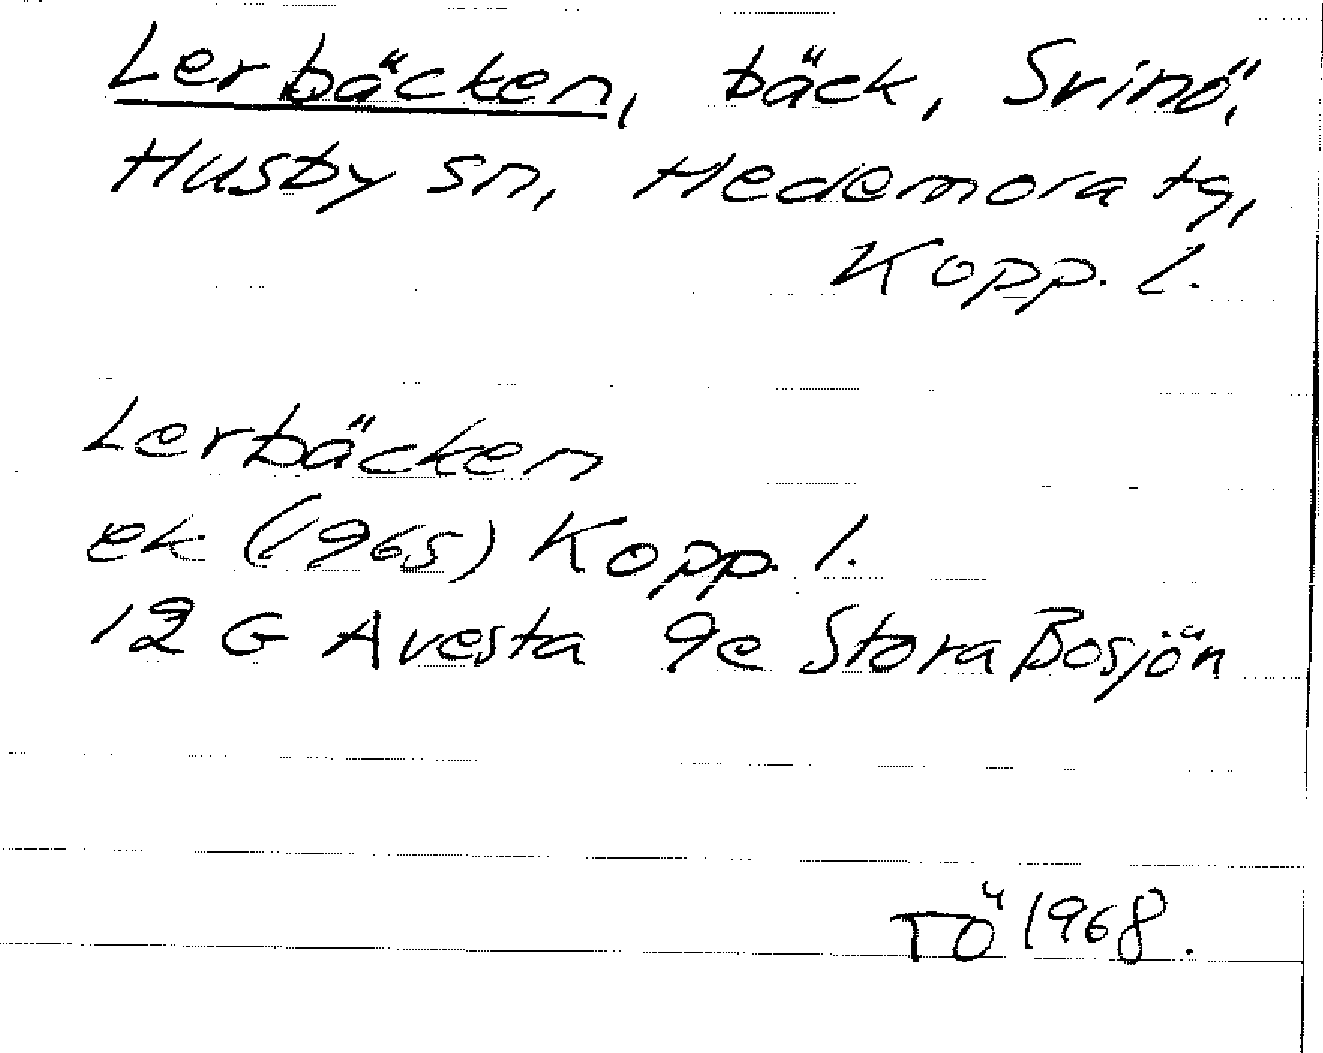 Lerbäcken, bäck, Svinö,
Husby sn, Hedemora tg,
Kopp. l.
Lerbäcken
ek (1965) Kopp. l.
12 G Avesta 9e Stora Bosjön
TÖ 1968.